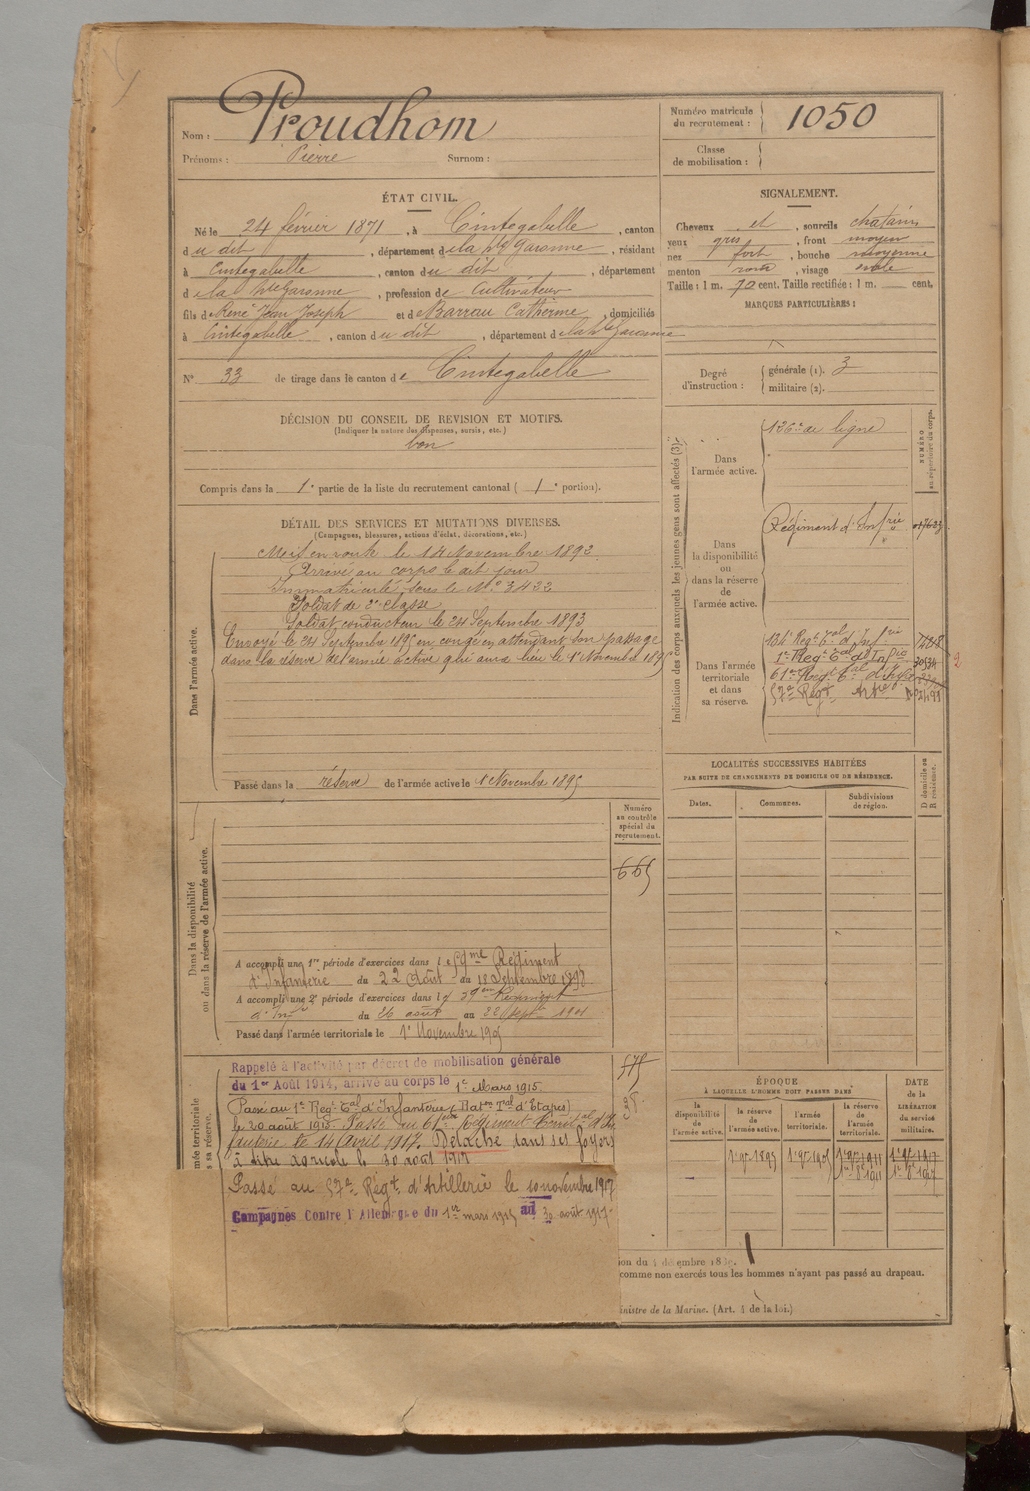 Nom : Proudhom
Prénoms : Pierre Surnom :
Numéro matricule du recrutement : 1050
Classe de mobilisation :
ÉTAT CIVIL.
Né le 24 février 1871, à Cintegabelle, canton
du dit, département de la hte Garonne, résidant
à Cintegabelle, canton du dit, département
de la hte Garonne, profession de Cultivateur
fils de René Jean Joseph et de Barrau Catherine, domiciliés
à Cintegabelle, canton du dit, département de la hte Garonne
SIGNALEMENT.
Cheveux et, sourcils chatains
yeux gris, front moyen
nez fort, bouche moyenne
menton rond, visage ovale
Taille : 1 m. 70 cent. Taille rectifiée : 1 m. cent.
MARQUES PARTICULIÈRES :
N° 33 de tirage dans le canton de Cintegabelle
Degré d'instruction : générale (1). 3
militaire (2).
DÉCISION DU CONSEIL DE REVISION ET MOTIFS.
(Indiquer la nature des dispenses, sursis, etc.)
bon
Compris dans la 1e partie de la liste du recrutement cantonal ( 1e portion).
DÉTAIL DES SERVICES ET MUTATIONS DIVERSES.
(Campagnes, blessures, actions d'éclat, décorations, etc.)
Dans l'armée active.
Mis en route le 14 Novembre 1892
Arrivé au corps le dit jour
Immatriculé sous le N° 3422
Soldat de 2e classe
Soldat conducteur le 24 Septembre 1893
Envoyé le 24 Septembre 1895 en congé en attendant son passage
dans la réserve de l'armée active qui aura lieu le 1er Novembre 1895
Passé dans la réserve de l'armée active le 1er Novembre 1895
Indication des corps auxquels les jeunes gens sont affectés (3).
NUMÉRO au répertoire du corps.
Dans l'armée active.
126e de ligne
Dans la disponibilité ou dans la réserve de l'armée active.
Régiment d'Infrie
Dans l'armée territoriale et dans sa réserve.
134e Regt Tal d'Infrie
1er Regt Tal d'Infrie
61e Regt Tal d'Infrie
57e Regt Artie
LOCALITÉS SUCCESSIVES HABITÉES
PAR SUITE DE CHANGEMENTS DE DOMICILE OU DE RÉSIDENCE.
Dates. Communes. Subdivisions de région. D domicile ou R résidence.
Numéro au contrôle spécial du recrutement.
665
Dans la disponibilité ou dans la réserve de l'armée active.
A accompli une 1re période d'exercices dans le Régiment
d'Infanterie du 22 Août au 18 Septembre 1898
A accompli une 2e période d'exercices dans le 59em Régiment
d'Infie du 26 août au 22 Sept 1901
Passé dans l'armée territoriale le 1er Novembre 1905
575
Rappelé à l'activité par décret de mobilisation générale
du 1er Août 1914, arrivé au corps le 1er Mars 1915
Passé au 1er Regt Tal d'Infanterie (Baton Tal d'Etapes)
le 20 août 1915. Passé au 61eme Régiment Territal d'In-
fanterie le 14 Avril 1917. Détaché dans ses foyers
à titre agricole le 30 août 1917
Passé au 57e Régt d'Artillerie le 10 novembre 1917
Campagnes Contre l'Allemagne du 1er mars 1915 au 30 août 1917
ÉPOQUE
À LAQUELLE L'HOMME DOIT PASSER DANS
la disponibilité de l'armée active. la réserve de l'armée active. l'armée territoriale. la réserve de l'armée territoriale. DATE de la LIBÉRATION du service militaire.
1er 9bre 1895 1er 9bre 1905 1er 9bre 1911 1er 9bre 1917
1er 8bre 1911 1er 8bre 1917
comme non exercés tous les hommes n'ayant pas passé au drapeau.
inistre de la Marine. (Art. 4 de la loi.)